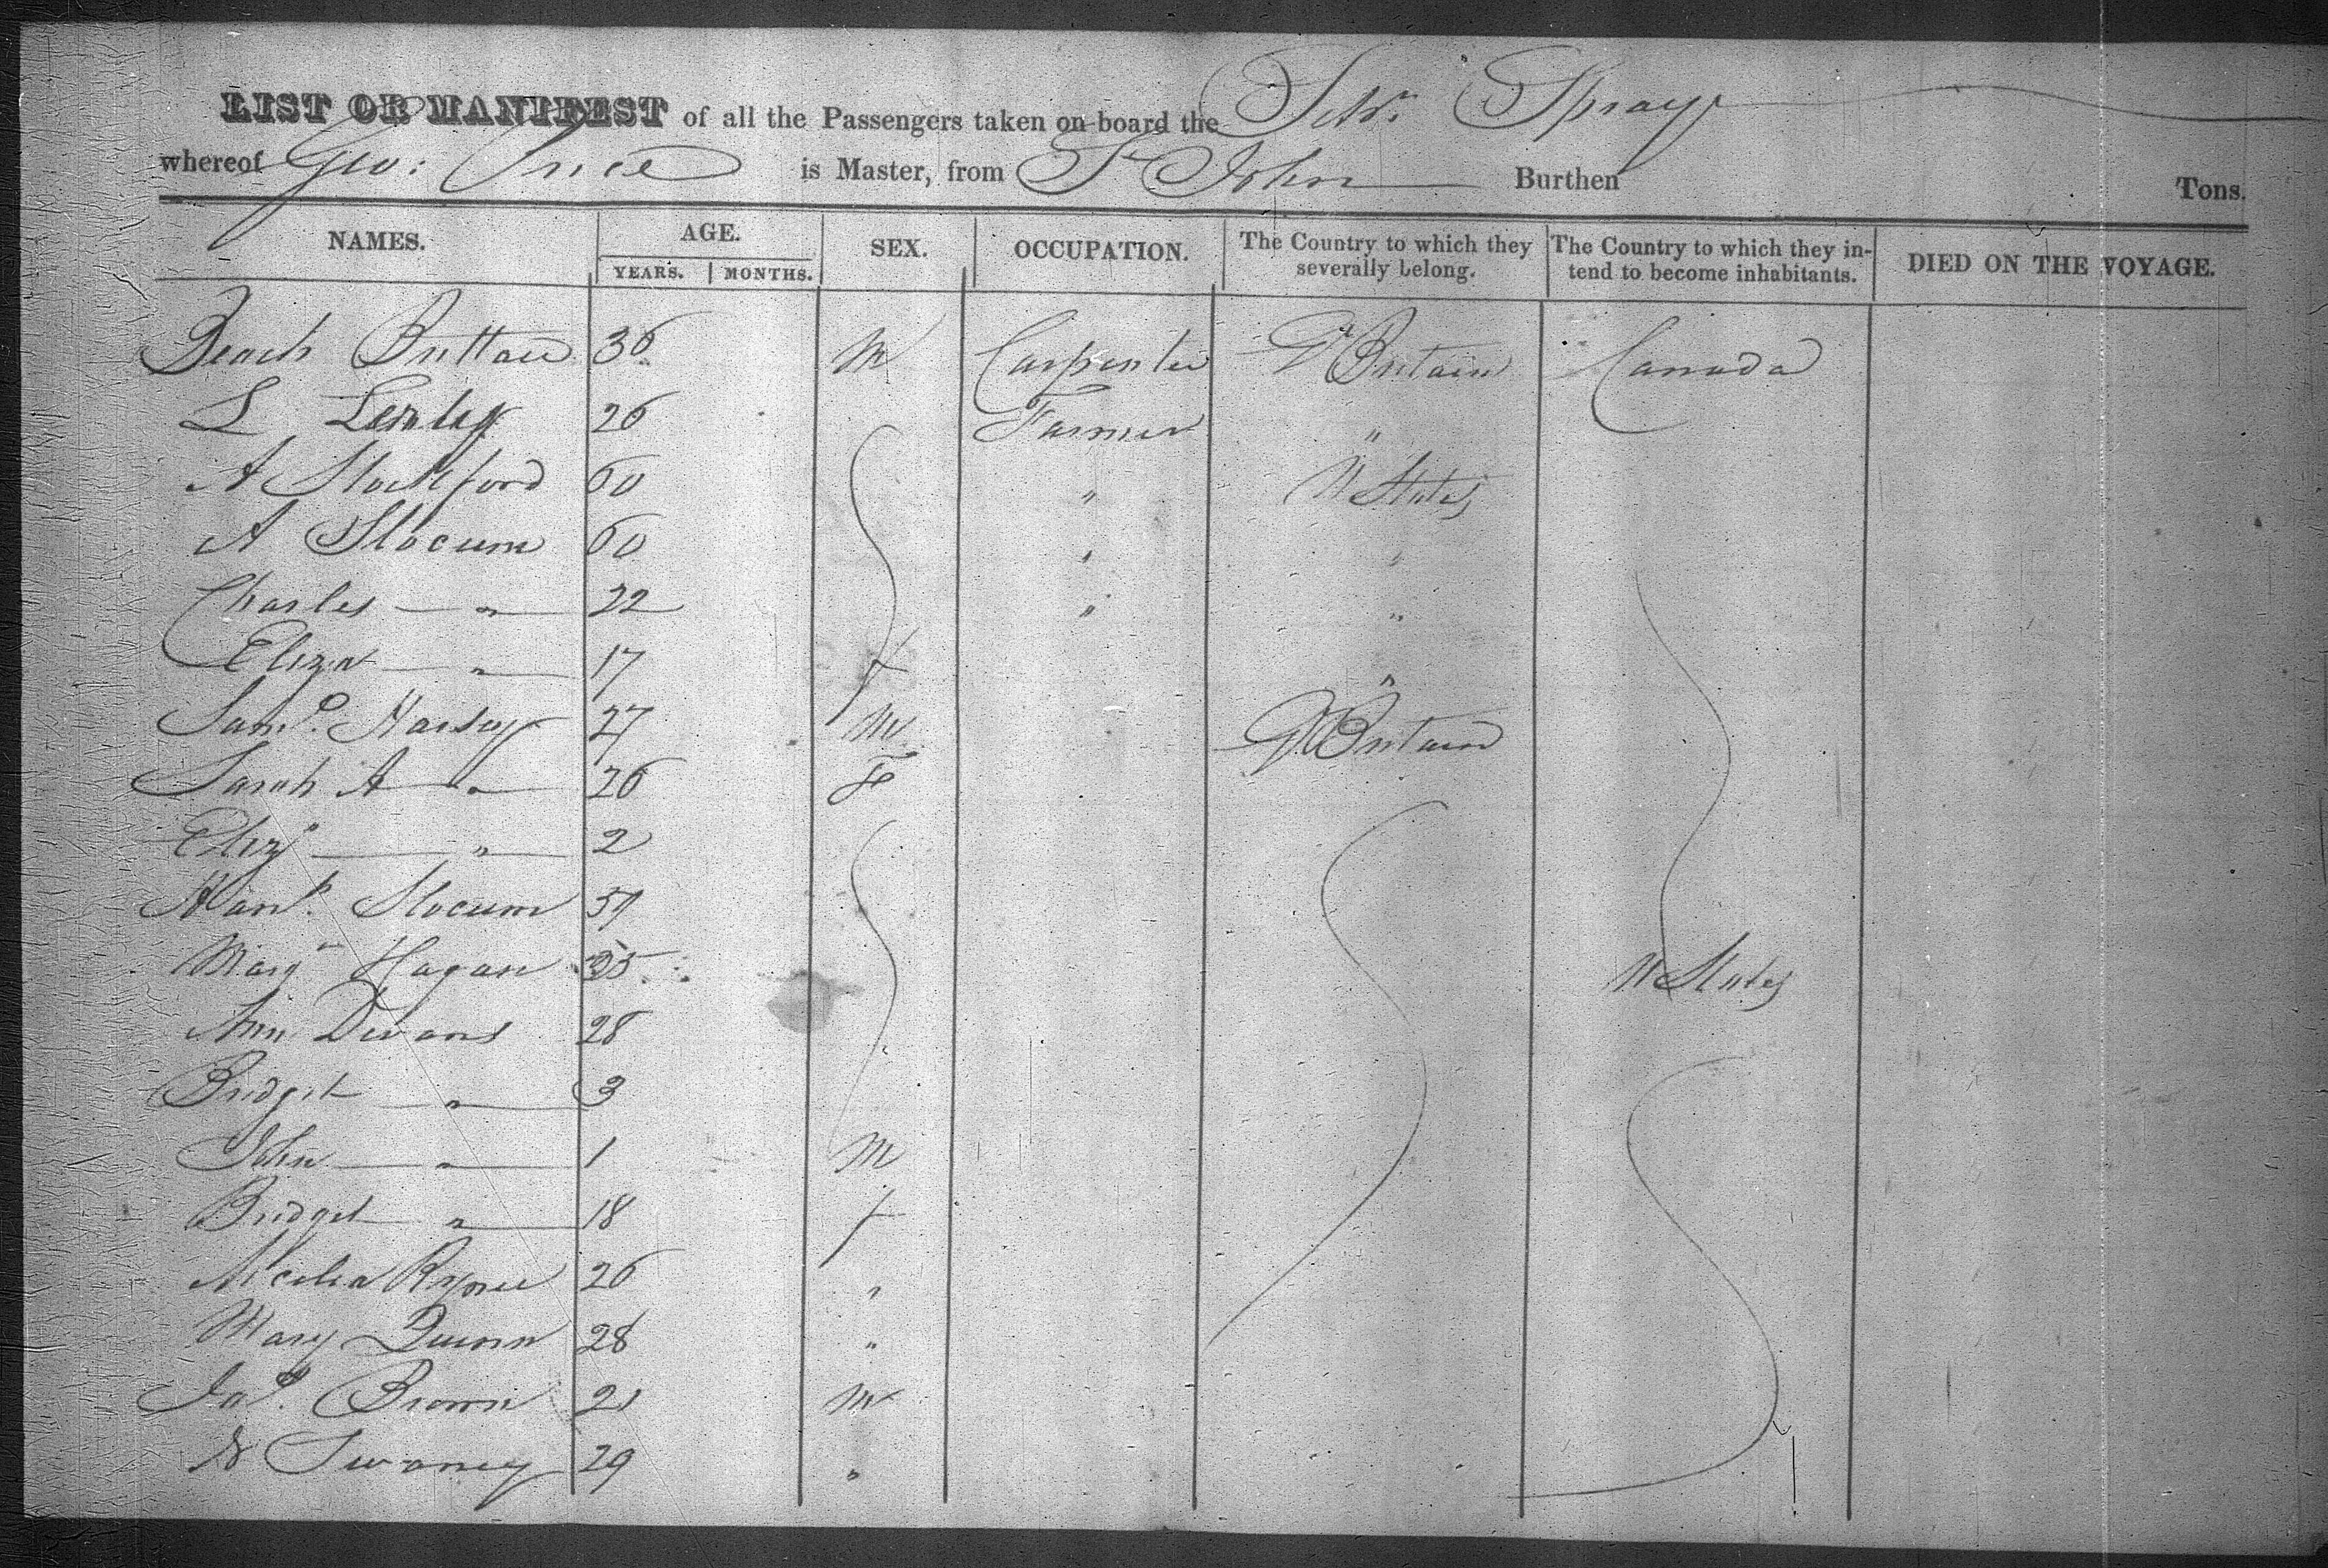 LIST OR MANIFEST of all the Passengers taken on board the Schr. Spray
whereof Geo: is Master, from St John Burthen Tons.
NAMES. AGE. YEARS. MONTHS. SEX. OCCUPATION. The Country to which they severally belong. The Country to which they intend to become inhabitants. DIED ON THE VOYAGE.
Beach Brittain 36 M Carpenter Gt Britain Canada
L 26 Farmer "
A Stockford 60 " U States
A Slocum 60 " "
Charles — " — 22 " "
Eliza — " — 17 f "
Saml. Harvey 27 M Gt Britain
Sarah A — " — 26 F
Eliz — " — 2
Hanh. Slocum 57
Mary Hagan 35 U States
Ann Devans 28
Bridget — " — 3
John — " — 1 M
Bridget — " — 18 f
26 "
Mary Quinn 28 "
Jas. Brown 21 M
Swaney 29 "